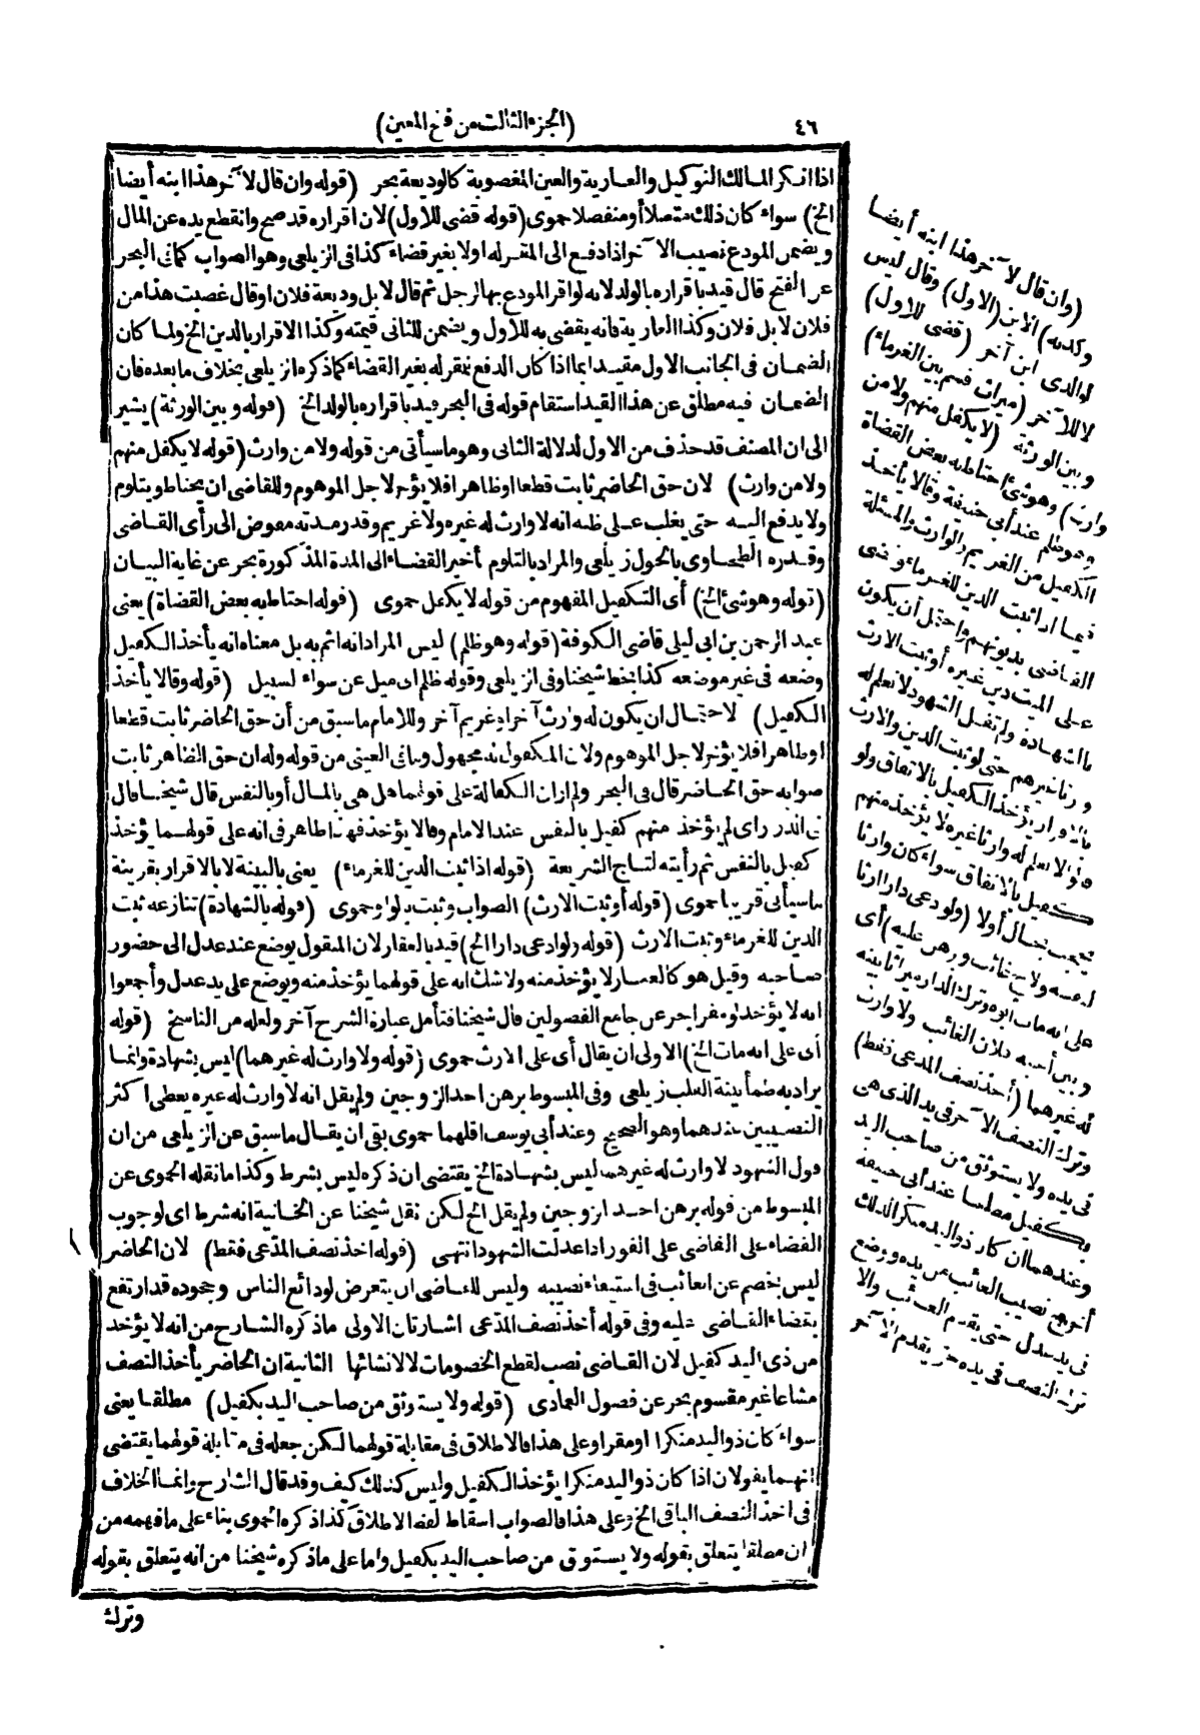 ٤٦
(الجزء الثالث من فتح المعين)
اذا أنكر المالك التوكيل والعارية والعين المغصوبة كالوديعة بحر (قوله وان قال لآخر هذا ابنه أيضا
الخ) سواء كان ذلك متصلا أو منفصلا حموى (قوله قضى للاول) لان اقراره قد صح وانقطع يده عن المال
ويضمن المودع نصيب الآخر اذا دفع الى المقر له اولا بغير قضاء كذا فى الزيلعى وهو الصواب كما فى البحر
عن الفتح قال قيد باقراره بالولد لانه لو اقر المودع بها لرجل ثم قال لا بل وديعة فلان او قال غصبت هذا من
فلان لا بل فلان وكذا العارية فانه يقضى به للاول ويضمن للثانى قيمته وكذا الاقرار بالدين الخ ولما كان
الضمان فى الجانب الاول مقيدا بما اذا كان الدفع للمقر له بغير القضاء كما ذكره الزيلعى بخلاف ما بعده فان
الضمان فيه مطلق عن هذا القيد استقام قوله فى البحر قيد باقراره بالولد الخ (قوله وبين الورثة) يشير
الى ان المصنف قد حذف من الاول لدلالة الثانى وهو ما سيأتى من قوله ولا من وارث (قوله لا يكفل منهم
ولا من وارث) لان حق الحاضر ثابت قطعا او ظاهرا فلا يؤخر لاجل الموهوم وللقاضى ان يحتاط ويتلوم
ولا يدفع اليه حتى يغلب على ظنه انه لا وارث له غيره ولا غريم وقدر مدته مفوض الى رأى القاضى
وقدره الطحاوى بالحول زيلعى والمراد بالتلوم تأخير القضاء الى المدة المذكورة بحر عن غاية البيان
(قوله وهو شئ الخ) أى التكفيل المفهوم من قوله لا يكفل حموى (قوله احتاط به بعض القضاة) يعنى
عبد الرحمن بن ابى ليلى قاضى الكوفة (قوله وهو ظلم) ليس المراد انه اثم به بل معناه انه يأخذ الكفيل
وضعه فى غير موضعه كذا بخط شيخنا وفى الزيلعى وقوله ظلم اى ميل عن سواء لسبيل (قوله وقالا يأخذ
الكفيل) لاحتمال ان يكون له وارث آخر او غريم آخر وللامام ما سبق من أن حق الحاضر ثابت قطعا
او ظاهرا فلا يؤخر لاجل الموهوم ولان المكفول له مجهول وما فى العينى من قوله وله ان حق الظاهر ثابت
صوابه حق الحاضر قال فى البحر ولم ار ان الكفالة على قولهما هل هى بالمال أو بالنفس قال شيخنا قال
فى الدرر اى لم يؤخذ منهم كفيل بالنفس عند الامام وقالا يؤخذ فهذا ظاهر فى انه على قولهما يؤخذ
كفيل بالنفس ثم رأيته لتاج الشريعة (قوله اذا ثبت الدين للغرماء) يعنى بالبينة لا بالاقرار بقرينة
ما سيأتى قريبا حموى (قوله أو ثبت الارث) الصواب وثبت بالواو حموى (قوله بالشهادة) تنازعه ثبت
الدين للغرماء وثبت الارث (قوله ولو ادعى دارا الخ) قيد بالعقار لان المنقول يوضع عند عدل الى حضور
صاحبه وقيل هو كالعقار لا يؤخذ منه ولا شك انه على قولهما يؤخذ منه ويوضع على يد عدل وأجمعوا
انه لا يؤخذ لو مقرا بحر عن جامع الفصولين قال شيخنا فتأمل عبارة الشرح آخر ولعله من الناسخ (قوله
أى على انه مات الخ) الاولى ان يقال أى على الارث حموى (قوله ولا وارث له غيرهما) ليس بشهادة وانما
يراد به طمأنينة القلب زيلعى وفى المبسوط برهن احد الزوجين ولم يقل انه لا وارث له غيره يعطى اكثر
النصيبين عندهما وهو الصحيح وعند أبى يوسف اقلهما حموى بقى ان يقال ما سبق عن الزيلعى من ان
قول الشهود لا وارث له غيرهما ليس بشهادة الخ يقتضى ان ذكره ليس بشرط وكذا ما نقله الحموى عن
المبسوط من قوله برهن احد الزوجين ولم يقل الخ لكن نقل شيخنا عن الخانية انه شرط اى لوجوب
القضاء على القاضى على الفور اذا عدلت الشهود انتهى (قوله اخذ نصف المدّعى فقط) لان الحاضر
ليس بخصم عن الغائب فى استيفاء نصيبه وليس للقاضى ان يتعرض لودائع الناس وجحوده قد ارتفع
بقضاء القاضى عليه وفى قوله أخذ نصف المدّعى اشارتان الاولى ما ذكره الشارح من انه لا يؤخذ
من ذى اليد كفيل لان القاضى نصب لقطع الخصومات لا لانشائها الثانية ان الحاضر يأخذ النصف
مشاعا غير مقسوم بحر عن فصول العمادى (قوله ولا يستوثق من صاحب اليد بكفيل) مطلقا يعنى
سواء كان ذو اليد منكرا او مقرا وعلى هذا فالاطلاق فى مقابلة قولهما لكن جعله فى مقابلة قولهما يقتضى
انهما يقولان اذا كان ذو اليد منكرا يؤخذ الكفيل وليس كذلك كيف وقد قال الشارح وانما الخلاف
فى اخذ النصف الباقى الخ وعلى هذا فالصواب اسقاط لفظ الاطلاق كذا ذكره الحموى بناء على ما فهمه من
ان مطلقا يتعلق بقوله ولا يستوثق من صاحب اليد بكفيل واما على ما ذكره شيخنا من انه يتعلق بقوله
وترك
(وان قال لآخر هذا ابنه أيضا
وكذبه) الابن (الاول) وقال ليس
لوالدى ابن آخر (قضى للاول)
لا للآخر (ميراث قسم بين الغرماء)
وبين الورثة (لا يكفل منهم ولا من
وارث) وهو شئ احتاط به بعض القضاة
وهو ظلم عند أبى حنيفة وقالا يأخذ
الكفيل من الغريم والوارث والمسئلة
فيما اذا ثبت الدين للغرماء وقضى
القاضى بديونهم واحتمل أن يكون
على الميت دين غيره أو ثبت الارث
بالشهادة ولم تقل الشهود لا نعلم له
وارثا غيرهم حتى لو ثبت الدين والارث
بالاقرار يؤخذ الكفيل بالاتفاق ولو
قالوا لا نعلم له وارثا غيره لا يؤخذ منهم
كفيل بالاتفاق سواء كان وارثا
يحجب بحال أولا (ولو ادعى دارا ارثا
لنفسه ولاخ غائب وبرهن عليه) أى
على انه مات ابوه وترك الدار ميراثا بينه
وبين أخيه فلان الغائب ولا وارث
له غيرهما (أخذ نصف المدعى فقط)
وترك النصف الآخر فى يد الذى هى
فى يده ولا يستوثق من صاحب اليد
بكفيل مطلقا عند أبى حنيفة
وعندهما ان كان ذو اليد منكرا لذلك
أخرج نصيب الغائب عن يده ووضع
فى يد عدل حتى يقدم الغائب والا
ترك النصف فى يده حتى يقدم الآخر